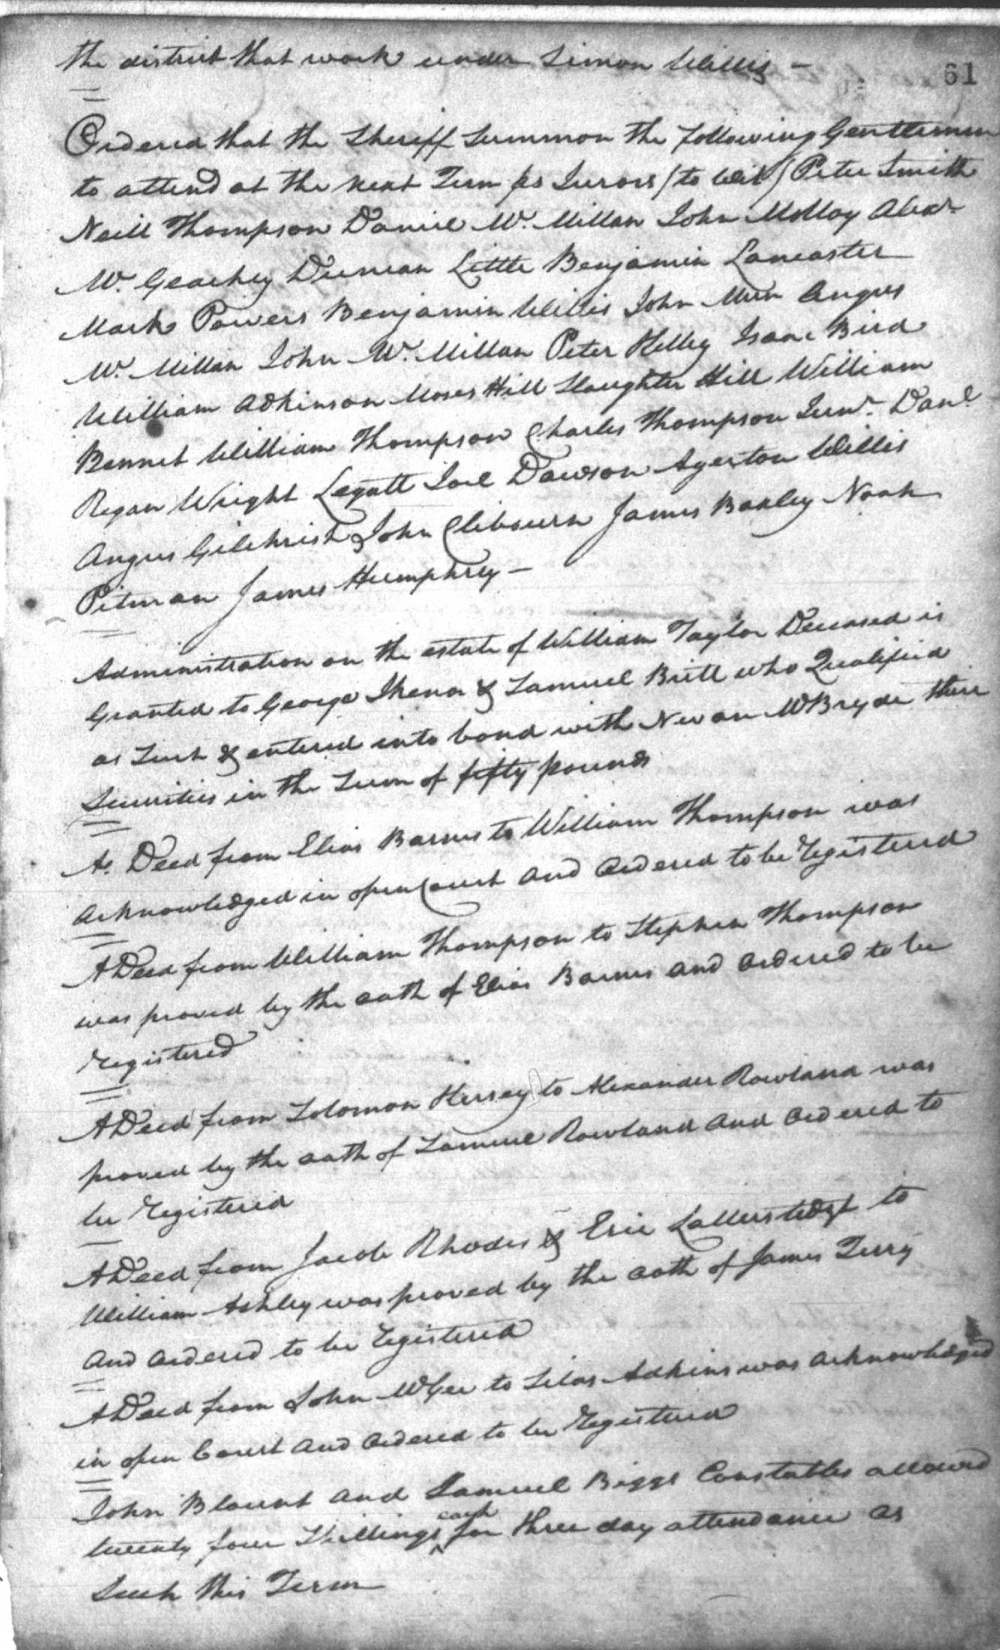 the district that work under Simon Willis —
61
Ordered that the Sheriff Summon the following Gentlemen
to attend at the next Term as Jurors (to wit) Peter Smith
Neill Thompson Daniel Mc. Millan John McKay Alexr.
Mc. Geachey Duncan Little Benjamin Lancaster
Mark Powers Benjamin Willis John Angus
Mc. Millan John Mc. Millan Peter Kelley Isaac Bird
William Adkinson Moses Hill Slaughter Hill William
Bennet William Thompson Charles Thompson Junr. Danl.
Regan Wright Legatt Joel Dawson Agerton Willis
Angus Gilchrist John Clibourn James Baxley Noah
Pitman James Humphrey —
Administration on the estate of William Taylor Deceased is
Granted to George & Samuel Britt who Qualified
as Such & entered into bond with Nevan McBryde their
Securities in the Sum of fifty pounds
A Deed from Elias Barnes to William Thompson was
acknowledged in open Court and ordered to be Registered
A Deed from William Thompson to Stephen Thompson
was proved by the oath of Elias Barnes and ordered to be
Registered
A Deed from Solomon Hersey to Alexander Rowland was
proved by the oath of Samuel Rowland and ordered to
be Registered
A Deed from Jacob Rhodes & to
William Ashley was proved by the oath of James Terry
and ordered to be registered
A Deed from John McGee to Silas Adkins was acknowledged
in open Court and ordered to be Registered
John Blount and Samuel Biggs Constables allowed
each
twenty four Shillings ^ for three day attendance as
Such this Term